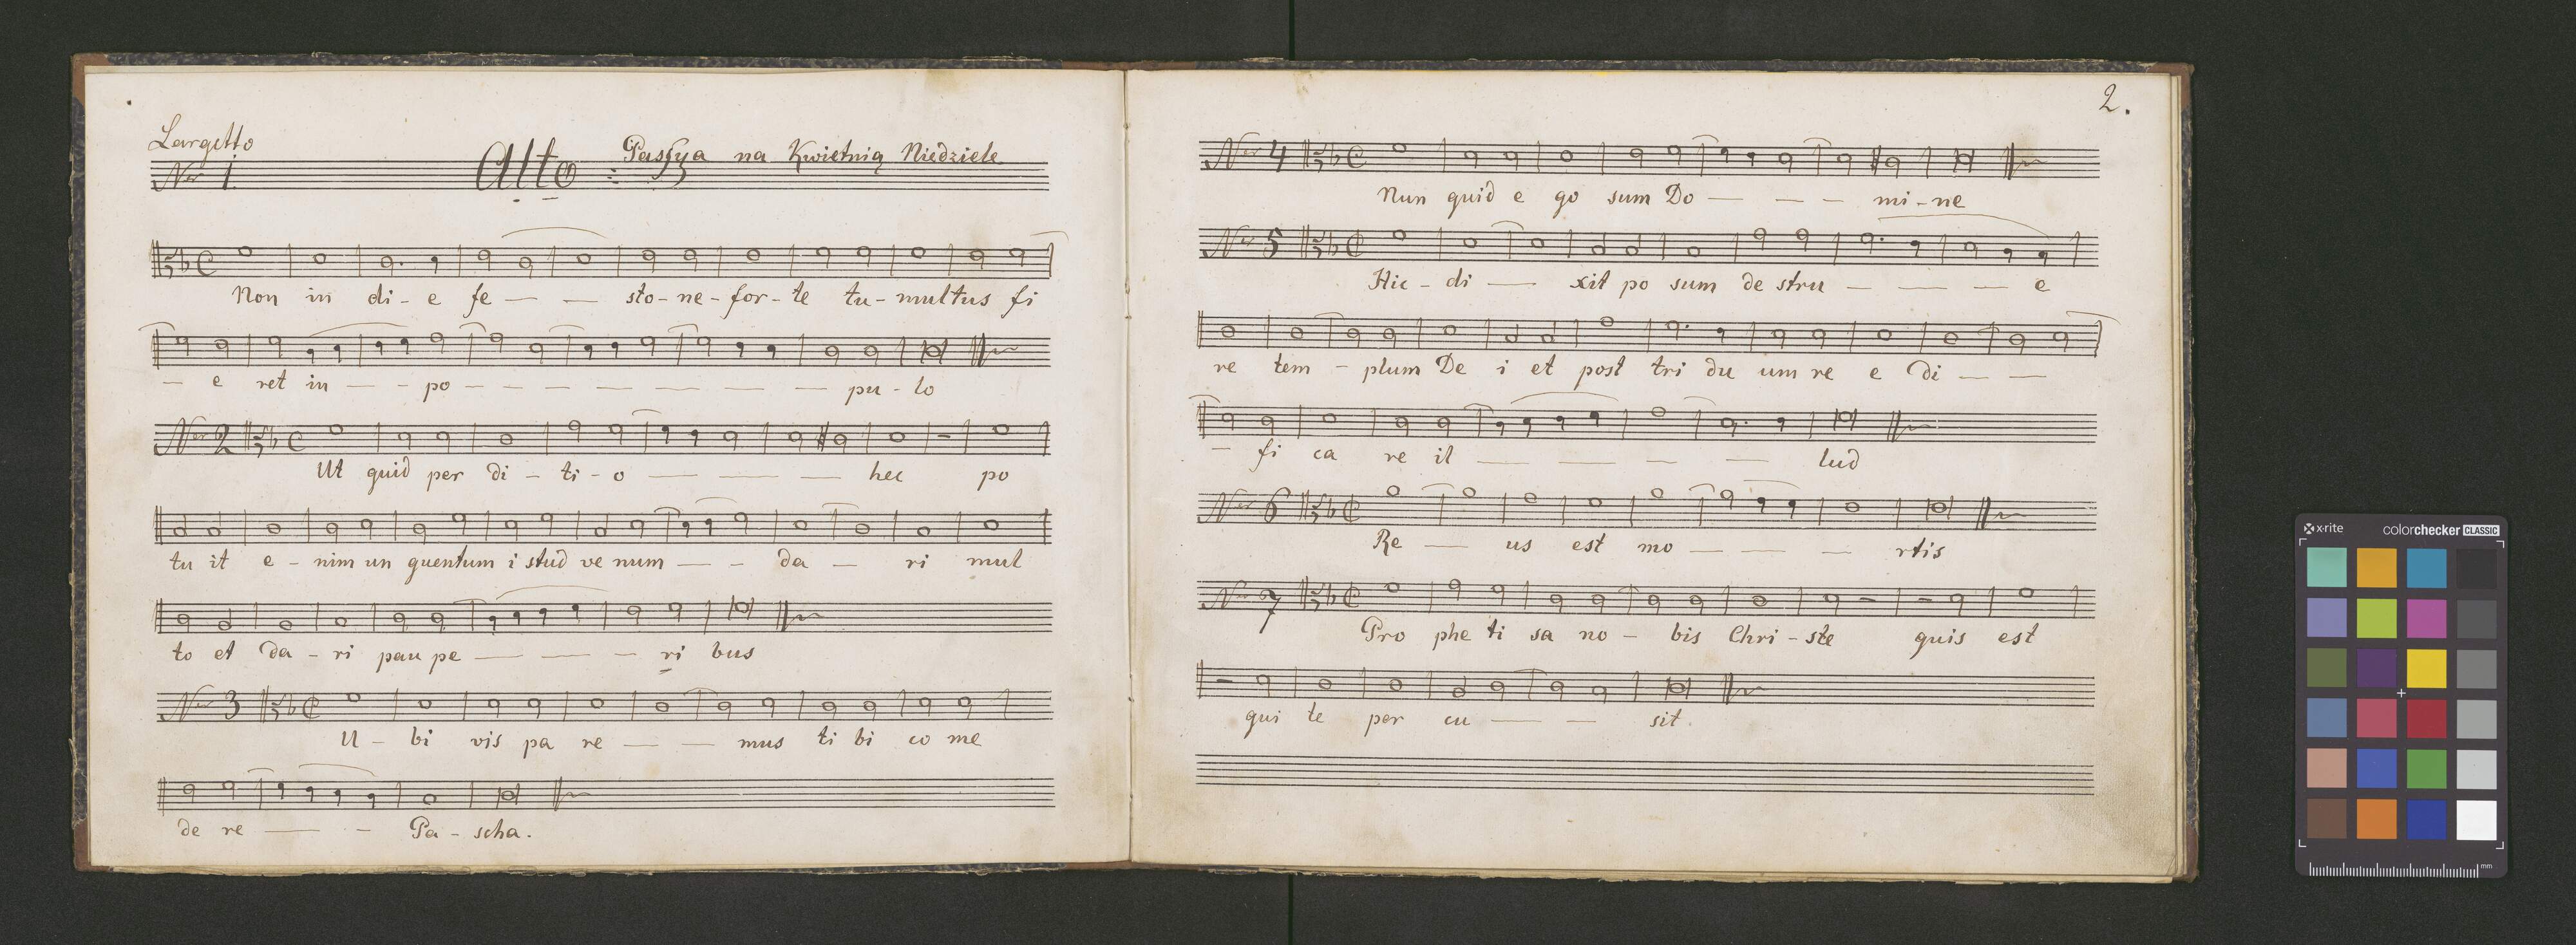 Largetto
Ner 1. Alto : Passya na Kwietnią Niedziele
Non in di - e fe — — sto - ne - for - te tu - multus fi
— e ret in — - po - - - — — — — — pu - lo
Ner 2 Ut quid per di - ti - o — — — hec po
tu it e - nim un quentum i stud ve num — - da — ri mul
to et da - ri pau pe — — — ri bus
Ner 3 U - bi vis pa re — — mus ti bi co me
de re — - Pa - scha.
2.
Ner 4 Nun quid e go sum Do — — — mi - ne
Ner 5 Hic - di — xit po sum de stru — — — e
re tem - plum De i et post tri du um re e di — —
- fi ca re il — — — — lud
Ner 6 Re — us est mo — — — rtis
Nr 7 Pro phe ti sa no - bis Chri - ste quis est
qui te per cu — — sit
x-rite colorchecker CLASSIC
mm